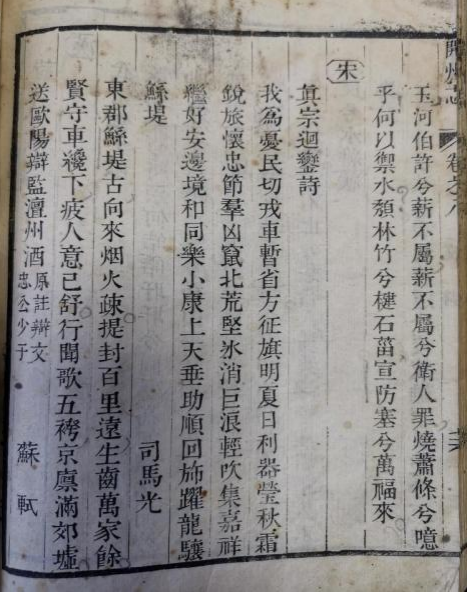 開州志 卷之八
玉河伯許兮薪不屬薪不屬兮衛人罪燒蕭條兮噫
乎何以禦水頹林竹兮楗石菑宣防塞兮萬福來
宋
眞宗迴鑾詩
我爲憂民切戎車暫省方征旗明夏日利器瑩秋霜
銳旅懷忠節羣凶竄北荒堅氷消巨浪輕吹集嘉祥
繼好安邊境和同樂小康上天垂助順回斾躍龍驤
鯀堤 司馬光
東郡鯀堤古向來烟火疎提封百里遠生齒萬家餘
賢守車纔下疲人意已舒行聞歌五袴京廩滿郊墟
送歐陽辯監澶州酒 原註辯文忠公少子 蘇軾